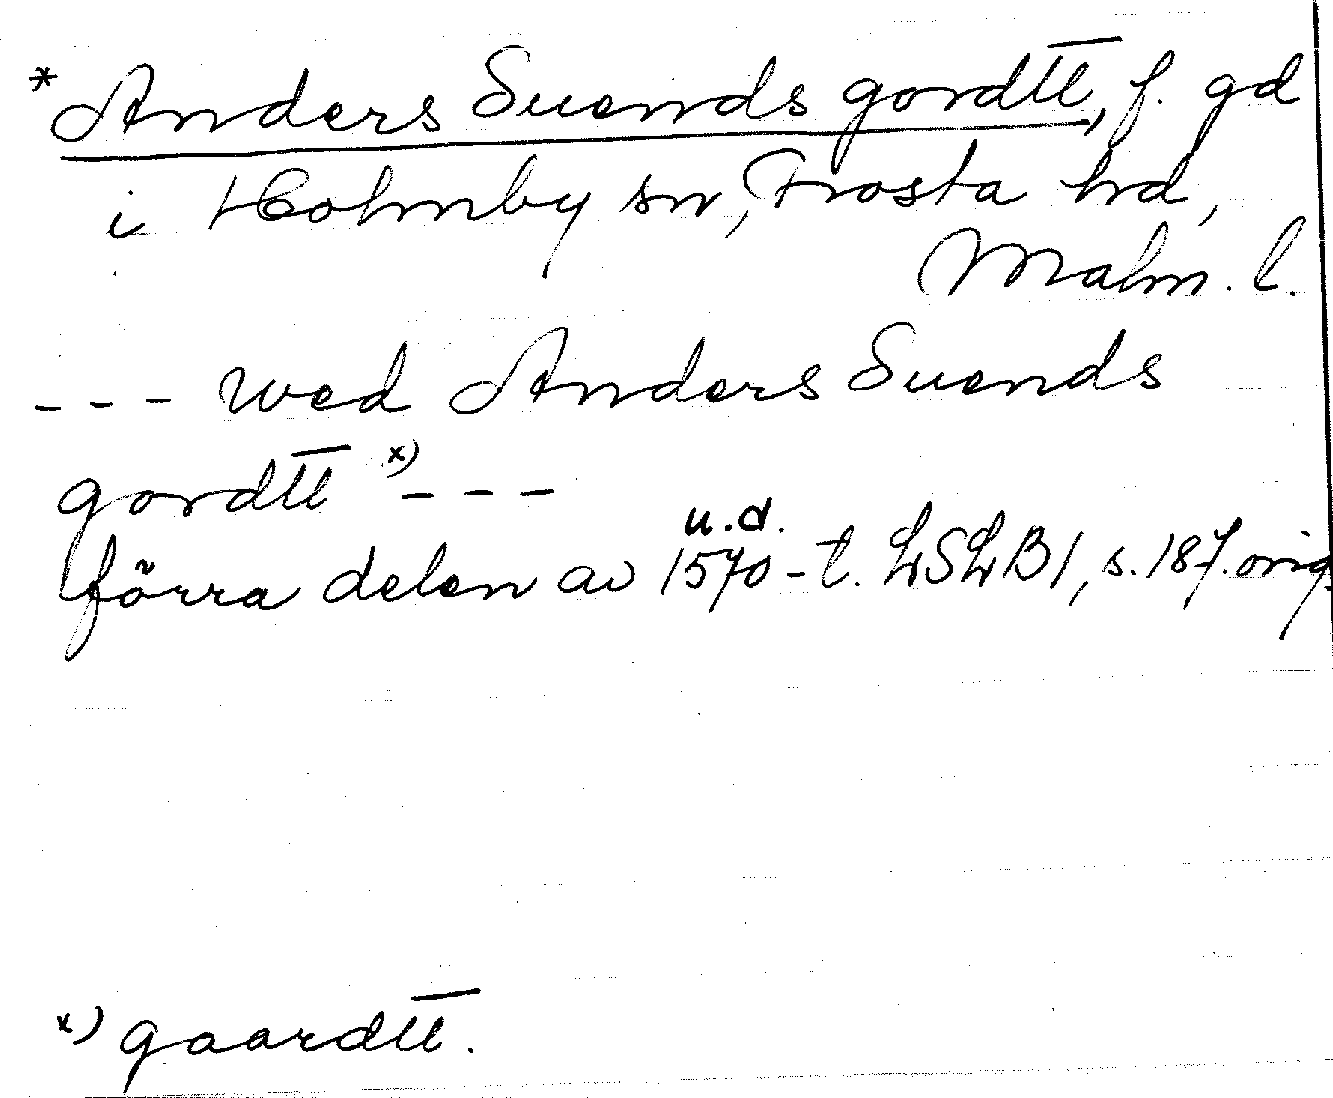 *Anders Suends gordtt̅, f. gd
i Holmby sn, Frosta hd,
Malm. l.
--- wed Anders Suends
gordtt̅ x) ---
u.d.
förra delen av 1570-t. LSLB1, s. 187. orig.
x) gaardtt̅.